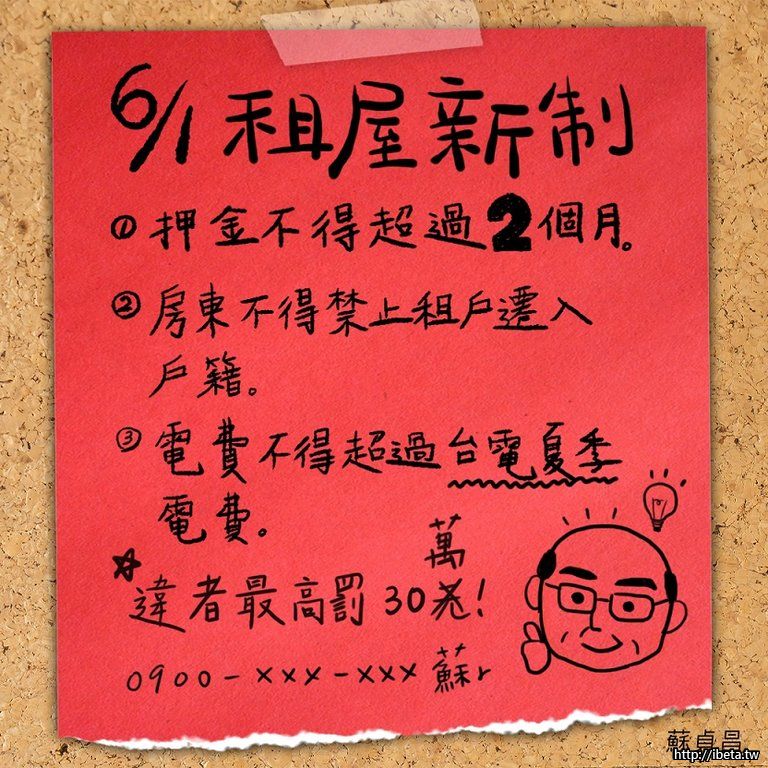 6/1租屋新制
①押金不得超過2個月。
②房東不得禁止租戶遷入
戶籍。
③電費不得超過台電夏季
電費。
萬
☆違者最高罰30!
0900-xxx-xxx 蘇r
蘇貞昌
http://ibeta.tw